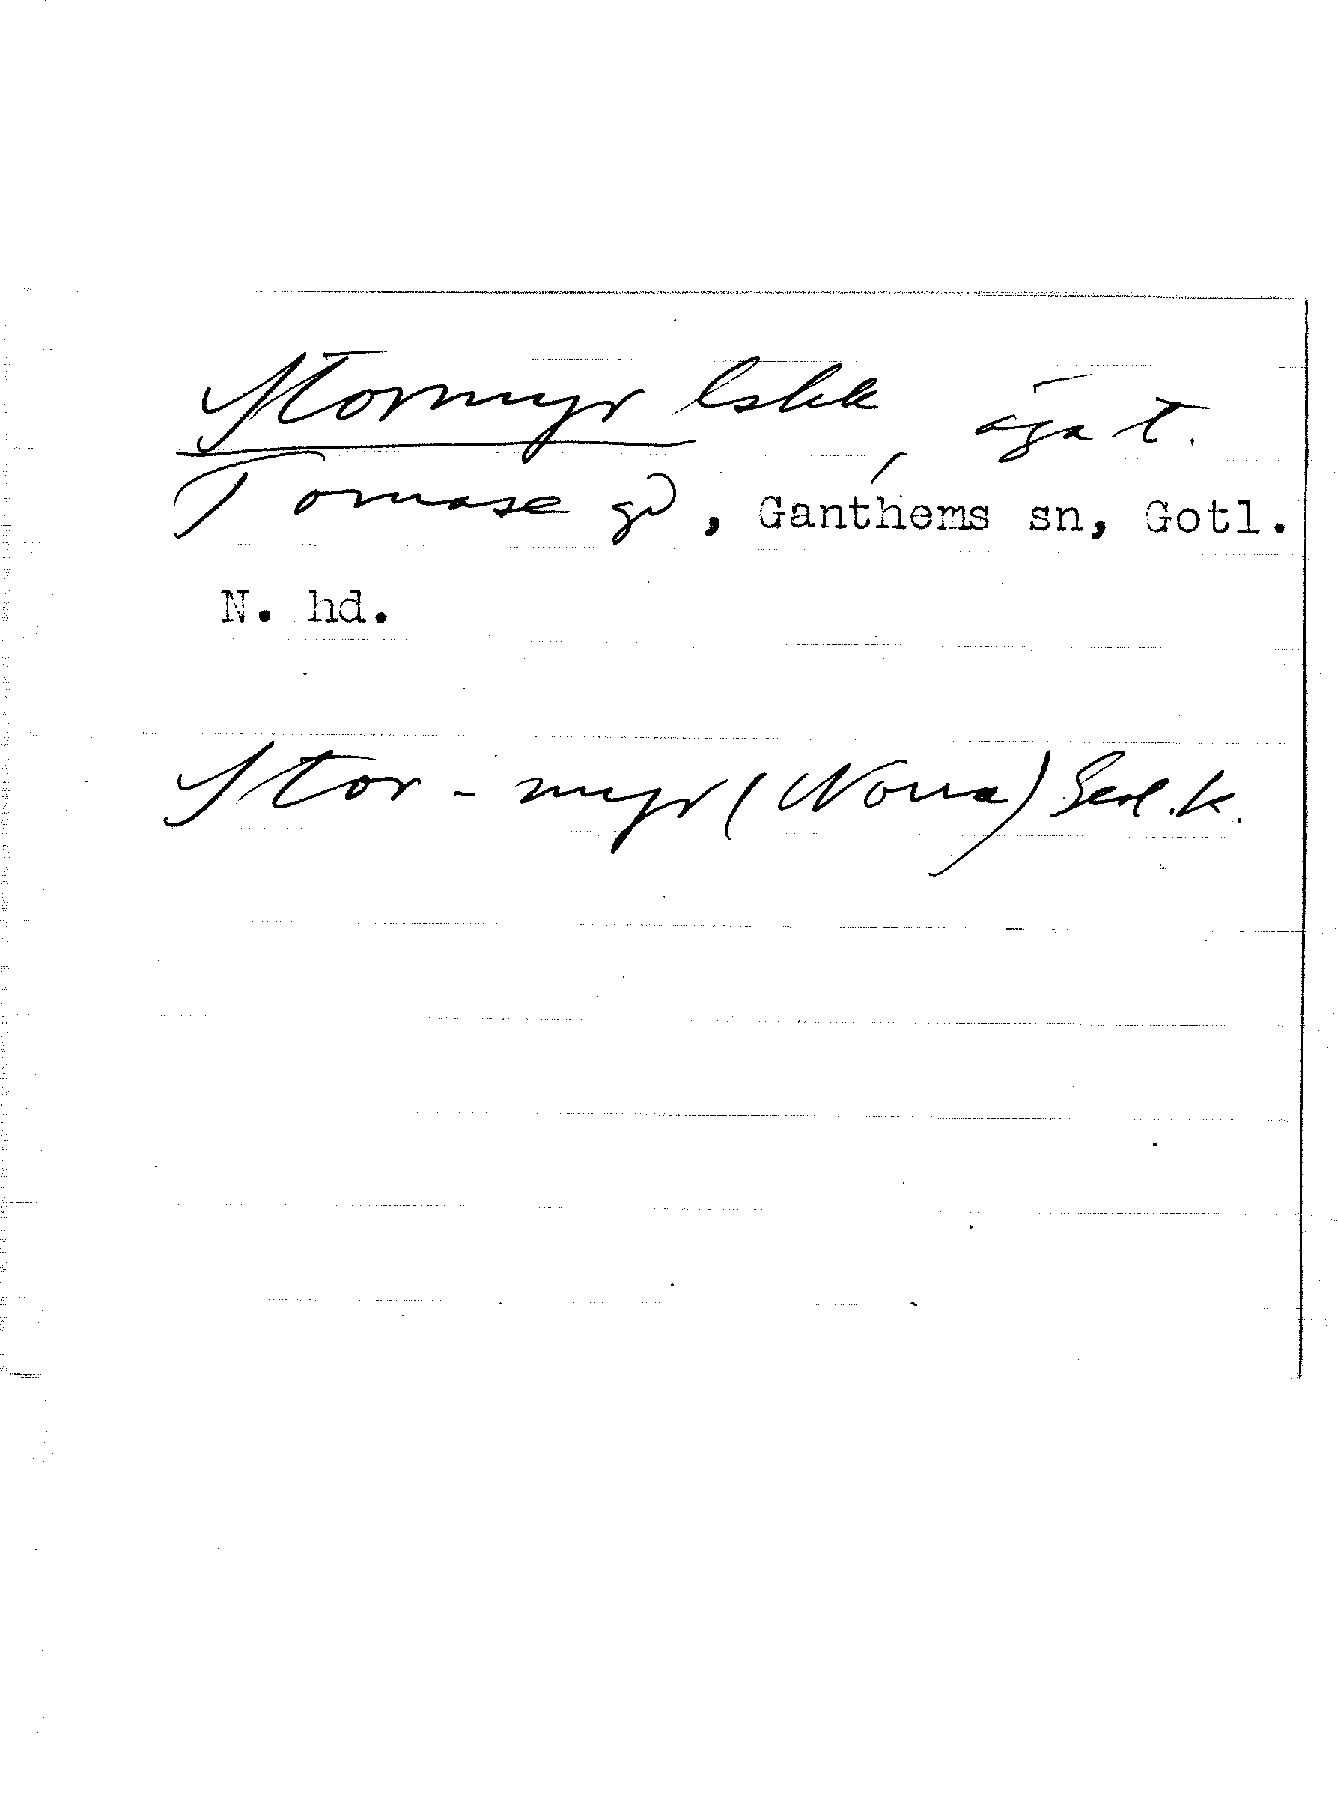 Stormyr Eskk, äga t.
Tomase gd, Ganthems sn, Gotl.
N. hd.
Stor-myr (Norra) k.